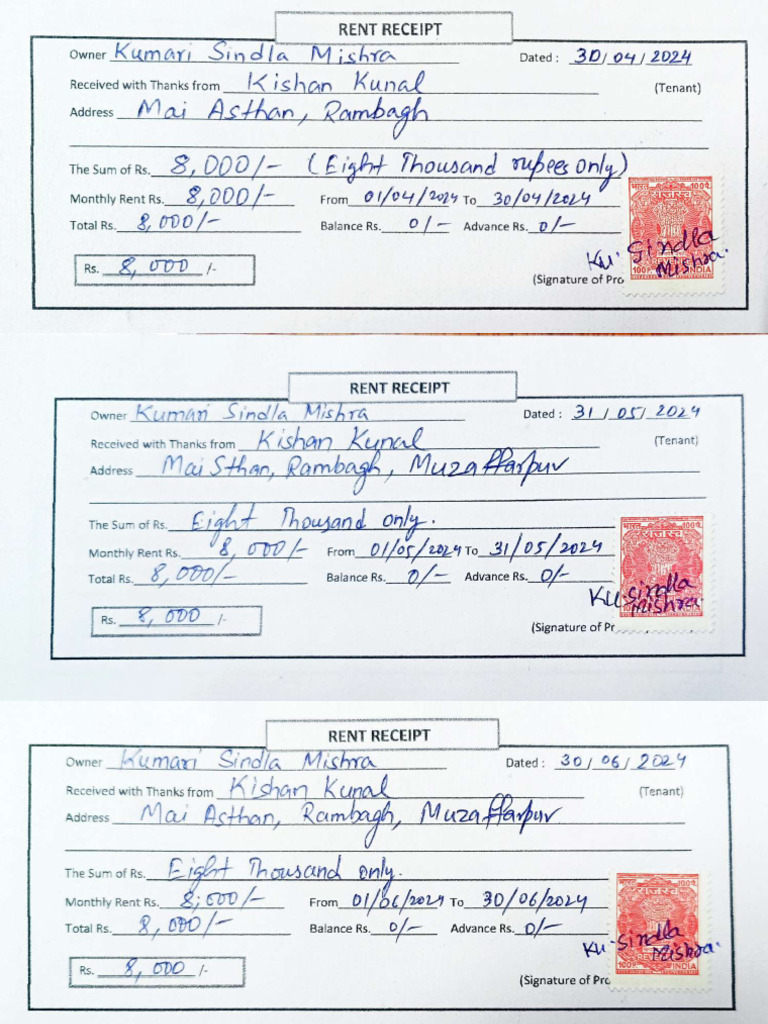 RENT RECEIPT
Owner Kumari Sindla Mishra Dated : 30/04/2024
Received with Thanks from Kishan Kunal (Tenant)
Address Mai Asthan, Rambagh
The Sum of Rs. 8,000/- (Eight Thousand rupees only)
Monthly Rent Rs. 8,000/- From 01/04/2024 To 30/04/2024
Total Rs. 8,000/- Balance Rs. 0/- Advance Rs. 0/-
भारत 100प.
राजस्व
Ku. Sindla
Mishra.
Rs. 8,000 /-
100P. INDIA
(Signature of Pro
RENT RECEIPT
Owner Kumari Sindla Mishra Dated : 31/05/2024
Received with Thanks from Kishan Kunal (Tenant)
Address Mai Sthan, Rambagh, Muzaffarpur
The Sum of Rs. Eight Thousand only.
Monthly Rent Rs. 8,000/- From 01/05/2024 To 31/05/2024
Total Rs. 8,000/- Balance Rs. 0/- Advance Rs. 0/-
भारत 100प.
राजस्व
Ku Sindla
Mishra.
Rs. 8,000 /-
(Signature of Pr
RENT RECEIPT
Owner Kumari Sindla Mishra Dated : 30/06/2024
Received with Thanks from Kishan Kunal (Tenant)
Address Mai Asthan, Rambagh, Muzaffarpur
The Sum of Rs. Eight Thousand only.
Monthly Rent Rs. 8,000/- From 01/06/2024 To 30/06/2024
Total Rs. 8,000/- Balance Rs. 0/- Advance Rs. 0/-
भारत 100प.
राजस्व
Ku. Sindla
Mishra.
Rs. 8,000 /-
100P. INDIA
(Signature of Pro